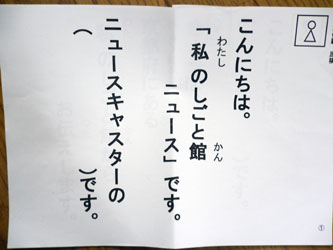 こんにちは。
「私のしごと館
わたし
かん
ニュース」です。
ニュースキャスターの
（　　　　　　）です。
①